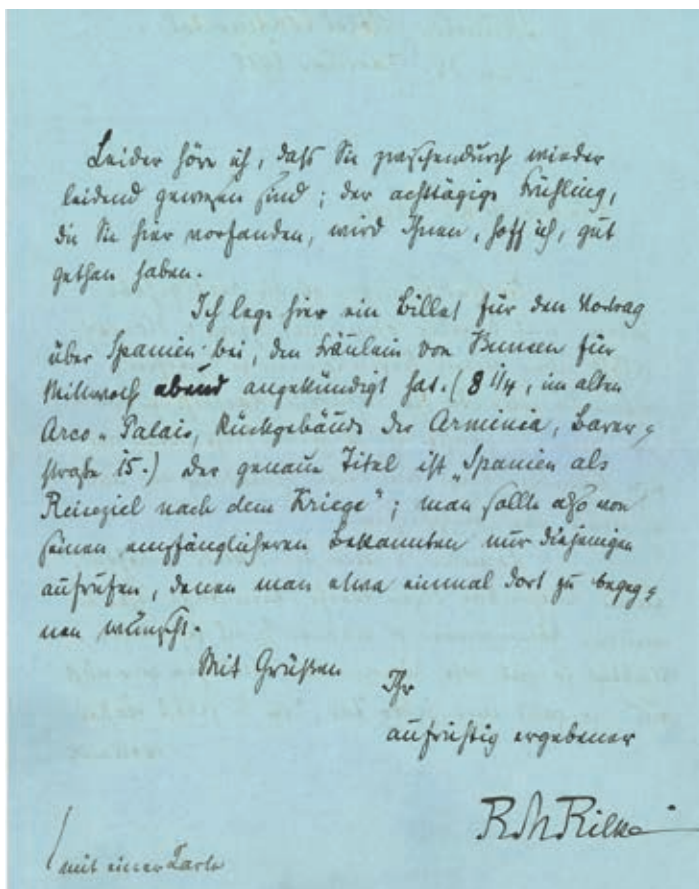 Leider höre ich, daß Sie zwischendurch wieder
leidend gewesen sind; der achttägige Frühling,
die Sie hier vorfanden, wird Ihnen, hoff ich, gut
gethan haben.
Ich lege hier ein Billet für den Vortrag
über Spanien bei, den Fräulein von Bunsen für
Mittwoch abend angekündigt hat. (8 1/4, im alten
Arco-Palais, Rückgebäude der Arminia, Barer-
straße 15.) Der genaue Titel ist „Spanien als
Reiseziel nach dem Kriege"; man sollte also von
seinen empfänglicheren Bekannten nur diejenigen
aufrufen, denen man etwa einmal dort zu begeg-
nen wünscht.
Mit Grüßen
Ihr
aufrichtig ergebener
RMRilke
mit einer Karte